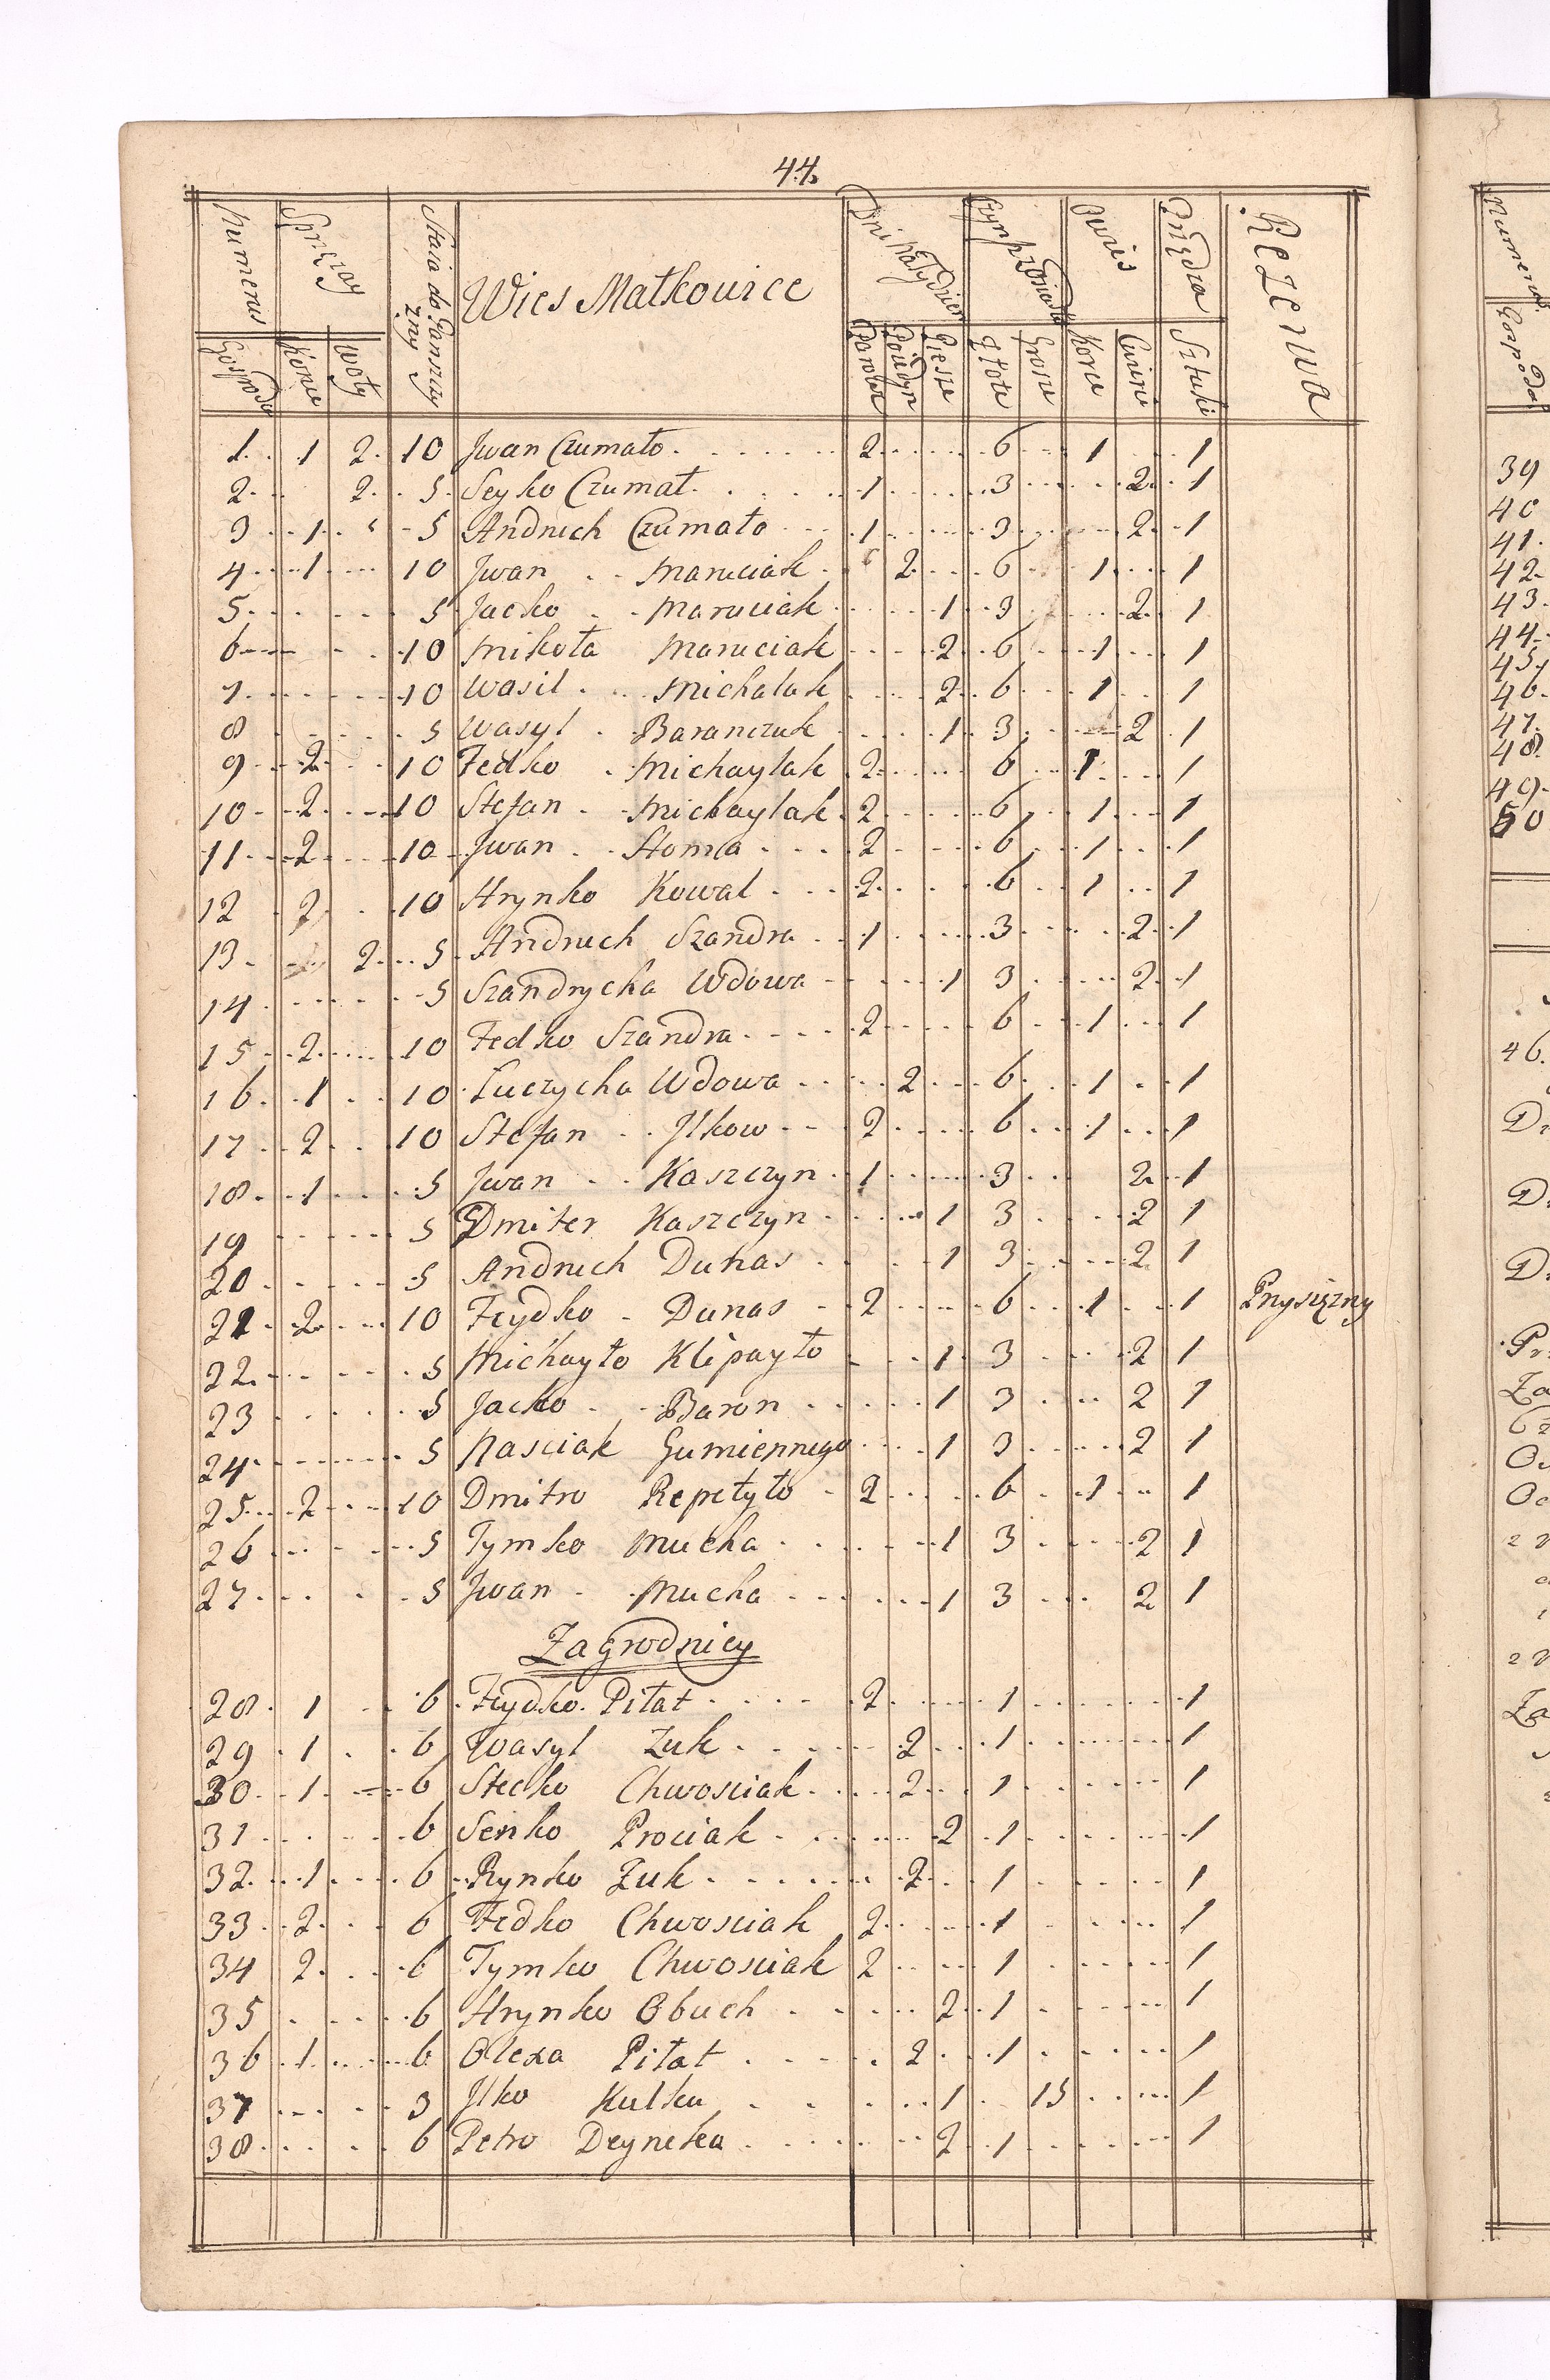 44.
Numerus Sprzęzay Staia do Panszczyzny Wies Małkowice Dni na Tydzien Czynsz Owies Przędza Rezerwa
Gospodar Konie Woły Parobże Piesze Złote Grosze Korce Cwierci Sztuki
1. 1 2. 10 Jwan Czumało 2 6 1 1
2. 2. 5 Seyko Czumał 1 3 2 1
3 1 5 Andruch Czumało 1 3 2 1
4 1 10 Jwan Maruciak 2 6 1 1
5 5 Jacko Maruciak 1 3 2 1
6 10 Mikoła Maruciak 2 6 1 1
7 10 Wasil Michalak 2 6 1 1
8 5 Wasyl Baranczuk 1 3 2 1
9 2 10 Fedko Michaylak 2 6 1 1
10 2 10 Stefan Michaylak 2 6 1 1
11 2 10 Jwan Słoma 2 6 1 1
12 2 10 Hrynko Kowal 2 6 1 1
13 2 5 Andruch Szandra 1 3 2 1
14 5 Szandrycha Wdowa 1 3 2 1
15 2 10 Fedko Szandra 2 6 1 1
16 1 10 Łuczycha Wdowa 2 6 1 1
17 2 10 Stefan Jlkow 2 6 1 1
18 1 5 Jwan Kaszczyn 1 3 2 1
19 5 Dmiter Kaszczyn 1 3 2 1
20 5 Andruch Dunas 1 3 2 1
21 2 10 Feydko Dunas 2 6 1 1 Przysięzny
22 5 Michayło Klipayło 1 3 2 1
23 5 Jacko Baron 1 3 2 1
24 5 Nasciak Gumiennego 1 3 2 1
25 2 10 Dmitro Repetyło 2 6 1 1
26 5 Tymko Mucha 1 3 2 1
27 5 Jwan Mucha 1 3 2 1
Zagrodnicy
28 1 6 Feydko Piłat 2 1 1
29 1 6 Wasyl Zuk 2 1 1
30 1 6 Stecko Chwosciak 2 1 1
31 6 Senko Prociak 2 1 1
32 1 6 Rynko Zuk 2 1 1
33 2 6 Fedko Chwosciak 2 1 1
34 2 6 Tymko Chwosciak 2 1 1
35 6 Hrynko Obuch 2 1 1
36 1 6 Olexa Piłat 2 1 1
37 3 Jlko Kulka 1 15 1
38 6 Petro Deyneka 2 1 1
Numerus
Gospodar
39
40
41
42
43
44
45
46
47
48
49
50
46.